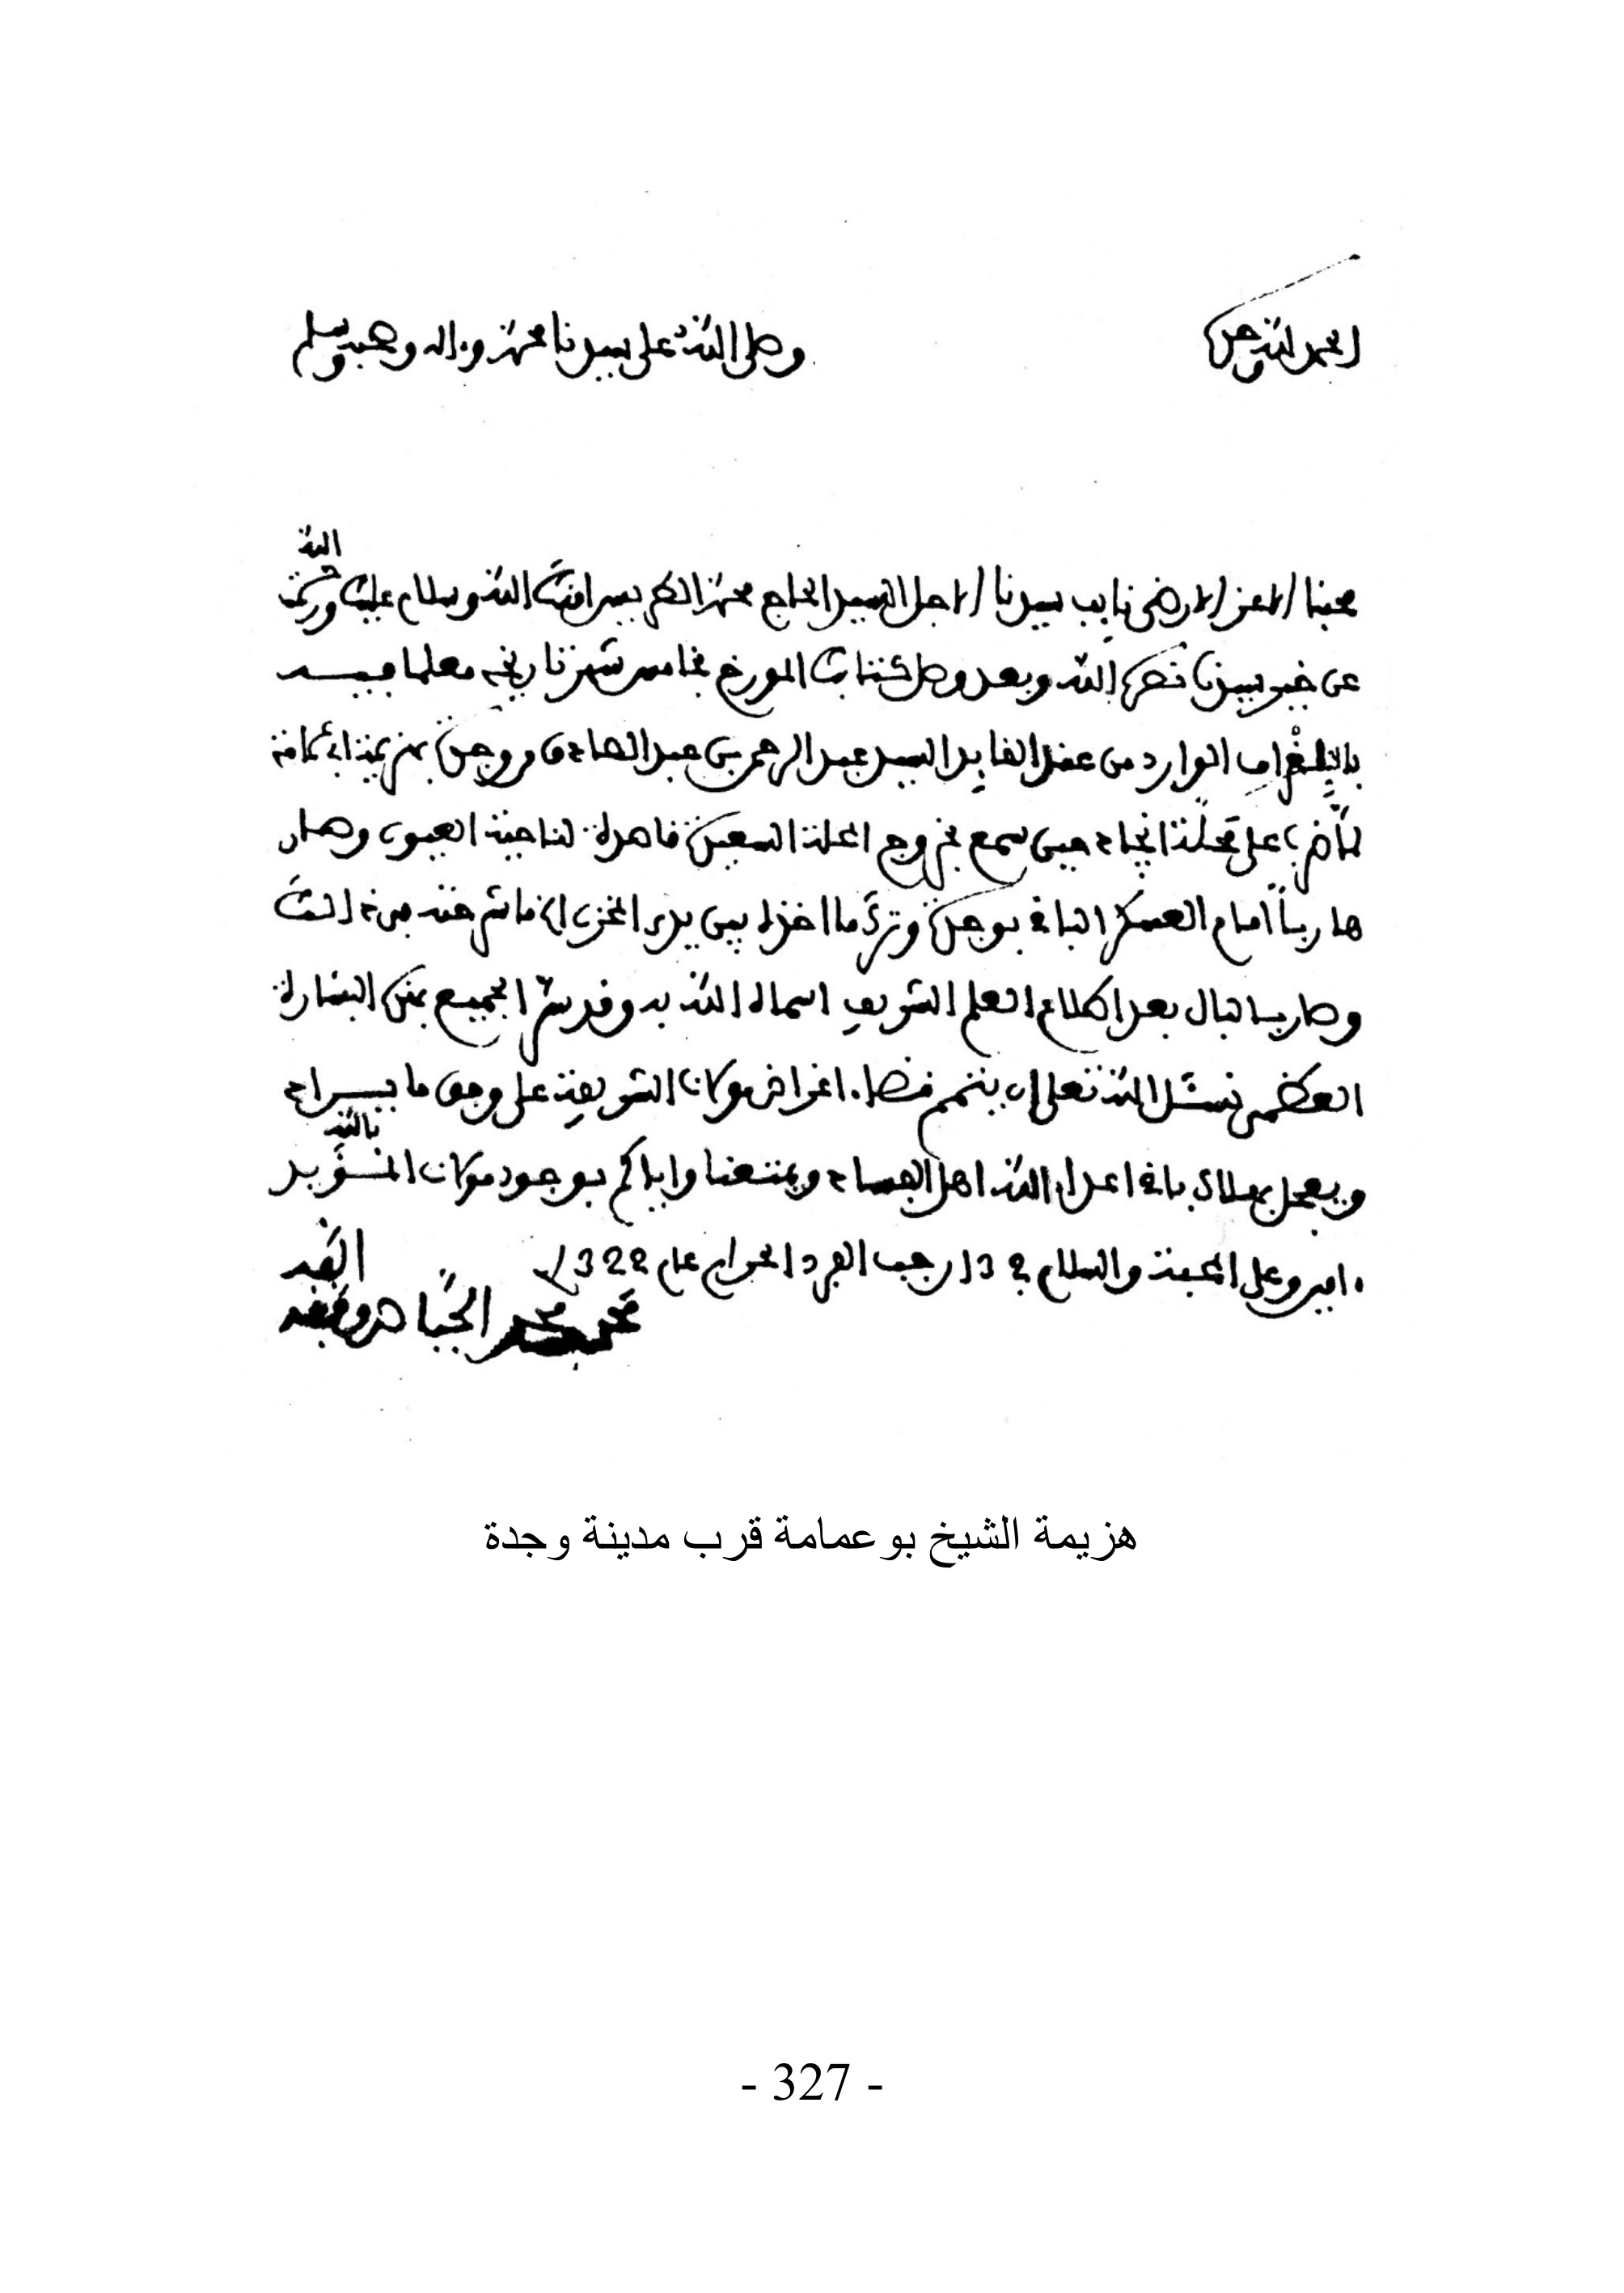 الحمد لله وحده
وصلى الله على سيدنا محمد وءاله وصحبه وسلم
محبنا الاعز الارضى نايب سيدنا الاجل السيد الحاج محمد الطريس امنك الله وسلام عليك ورحمت الله
عن خير سيدنا نصره الله وبعد وصل كتابك المورخ بخامس شهر تاريخه معلما فيه
بالتلغراف الوارد من عند القايد السيد عبد الرحمن بن عبد الصادق من وجدة بهزيمة ابى عمامة
على محلة حين سمع بخروج المحلة السعيدة قاصدة لناحية العيون وصار
هاربا امام العسكر الباقي بوجدة وترك ما اخذه بين يدى المخزن
وصار بالبال بعد اطلاع العلم الشريف اسماه الله به وقد سر الجميع بهذه البشارة
العظمى نسئل الله تعلى ان يتمم قضاء اغراض مولانا الشريفة على وفق ما يراد
ويعجل بهلاك باقى اعداء الله اهل الفساد ويمتعنا واياكم بوجود مولانا المؤيد بالله
ءامين وعلى المحبة والسلام في 13 رجب الفرد الحرام عام 1322
محمد الجباص وفقه الله
هزيمة الشيخ بوعمامة قرب مدينة وجدة
- 327 -